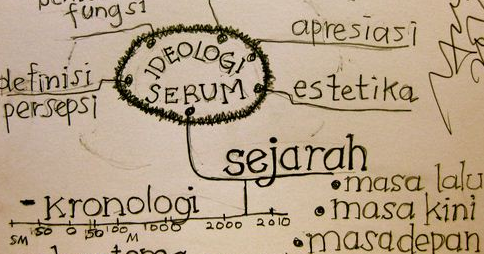 fungsi
apresiasi
IDEOLOGI
SERUM
definisi
persepsi
estetika
sejarah
- kronologi
• masa lalu
• masa kini
• masadepan
SM 50 0 50 100 1000 2000 2010
M